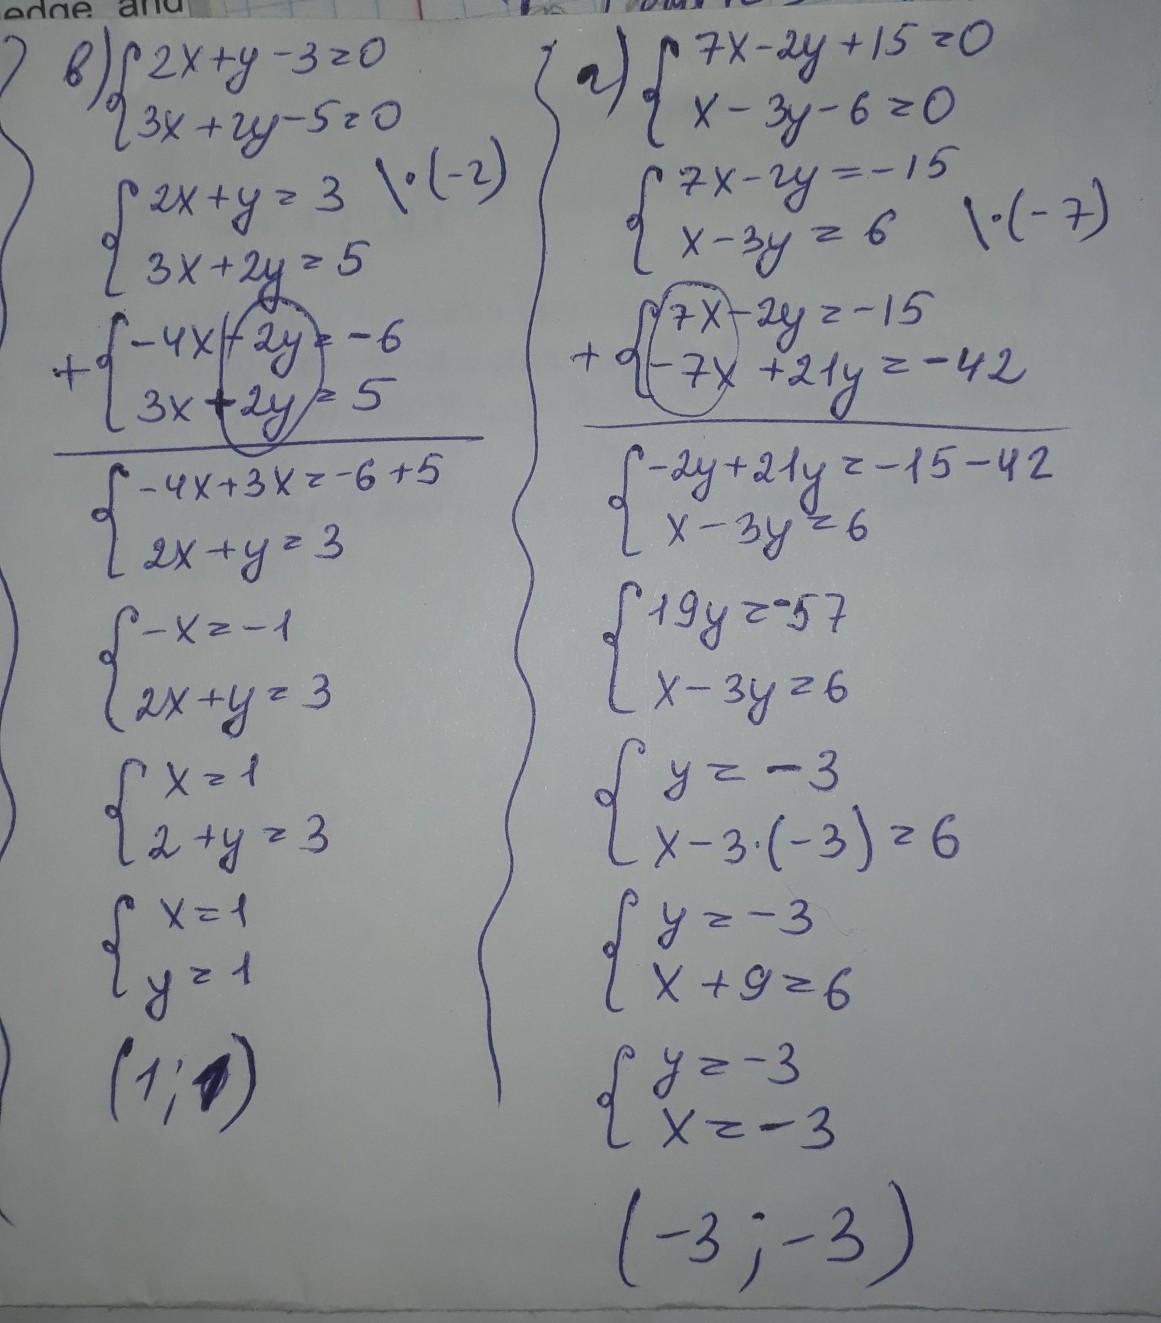 edge and
в) { 2x+y-3=0
3x+2y-5=0
{ 2x+y=3 \·(-2)
3x+2y=5
+ { -4x-2y=-6
3x+2y=5
{ -4x+3x=-6+5
2x+y=3
{ -x=-1
2x+y=3
{ x=1
2+y=3
{ x=1
y=1
(1;1)
г) { 7x-2y+15=0
x-3y-6=0
{ 7x-2y=-15
x-3y=6 \·(-7)
+ { 7x-2y=-15
-7x+21y=-42
{ -2y+21y=-15-42
x-3y=6
{ 19y=-57
x-3y=6
{ y=-3
x-3·(-3)=6
{ y=-3
x+9=6
{ y=-3
x=-3
(-3;-3)